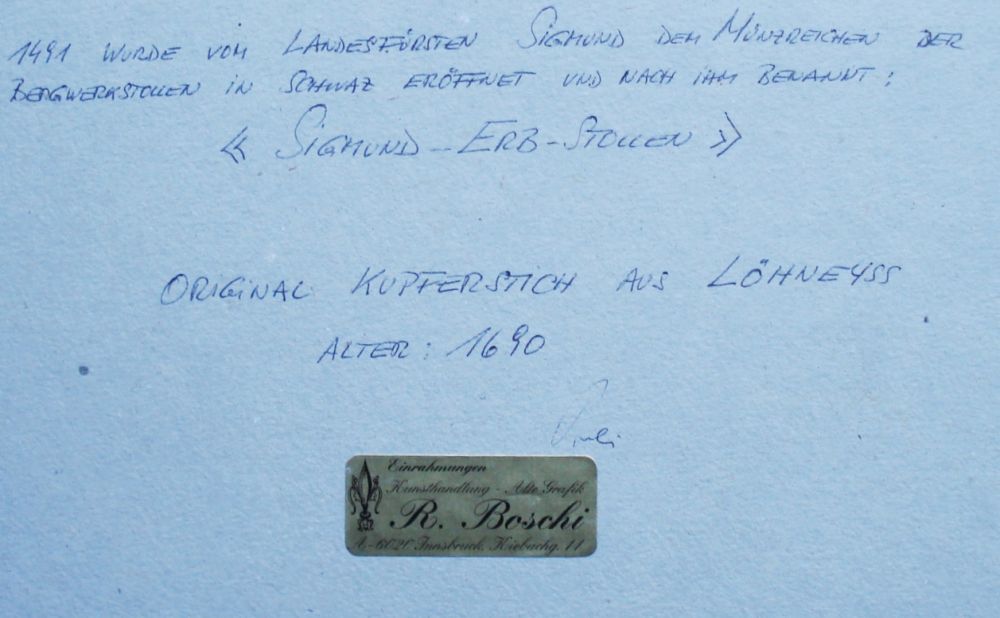 1491 WURDE VOM LANDESFÜRSTEN SIGMUND DEM MÜNZREICHEN DER
BERGWERKSTOLLEN IN SCHWAZ ERÖFFNET UND NACH IHM BENANNT:
« SIGMUND-ERB-STOLLEN »
ORIGINAL KUPFERSTICH AUS LÖHNEYSS
ALTER: 1690
Einrahmungen
Kunsthandlung - Alte Grafik
R. Boschi
A-6020 Innsbruck, Kiebachg. 11